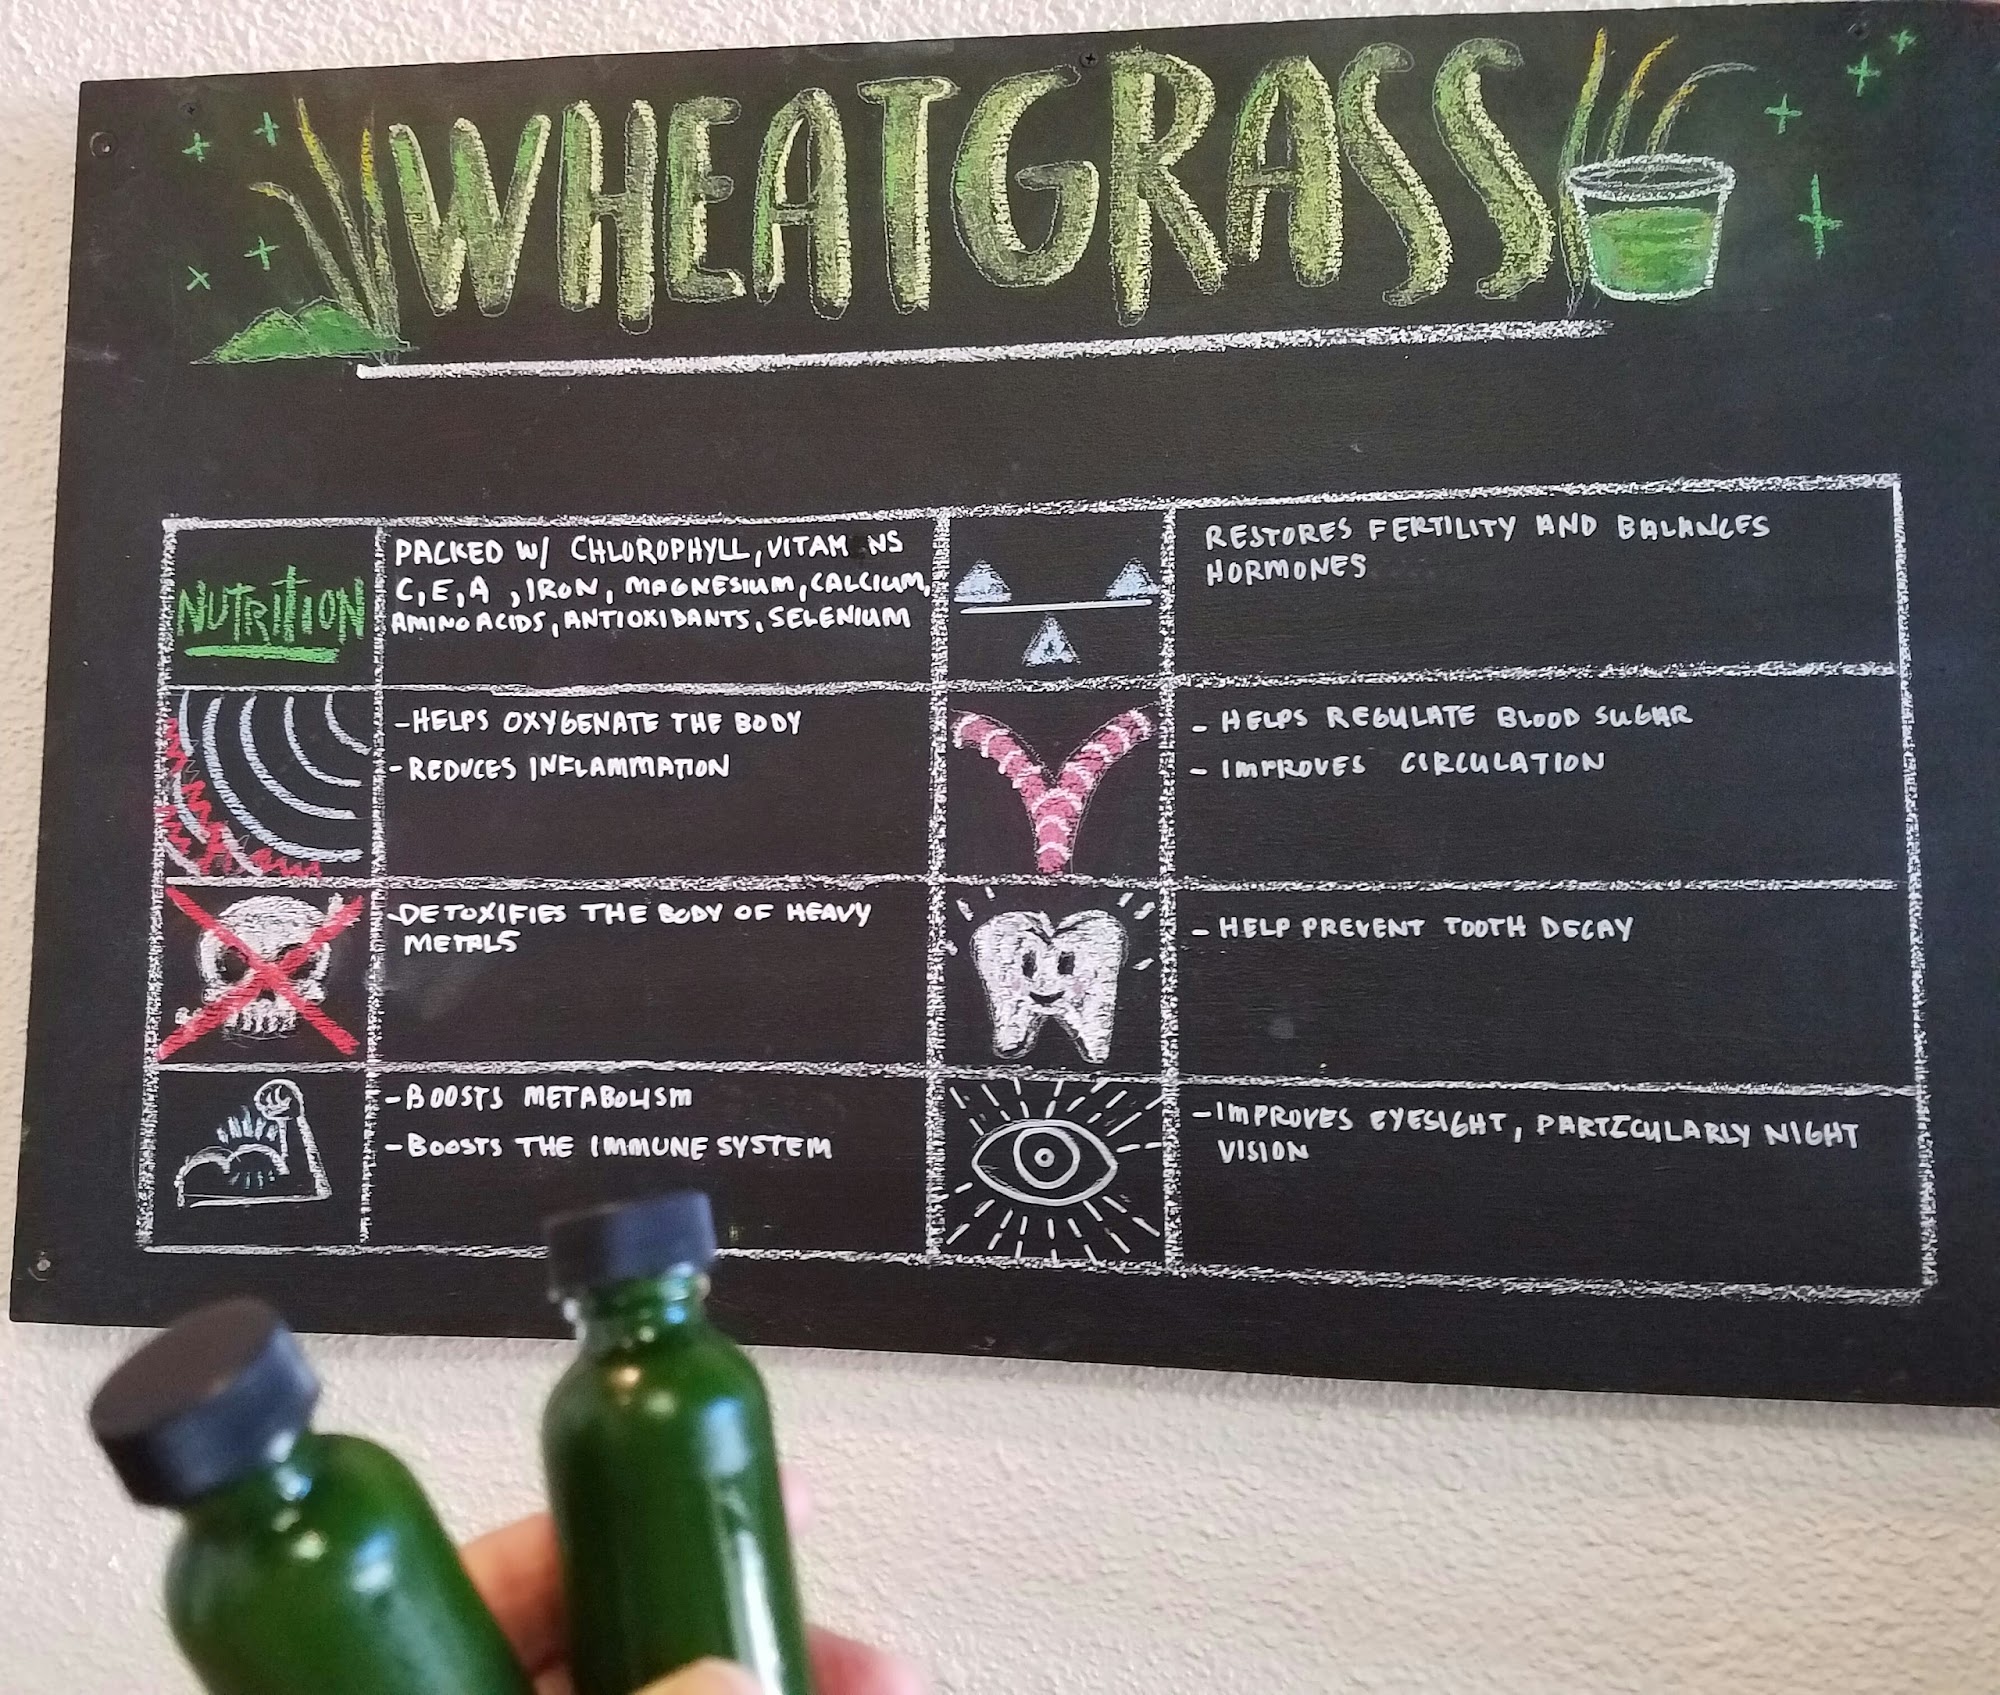 WHEATGRASS
NUTRITION
PACKED W/ CHLOROPHYLL, VITAM NS
C, E, A , IRON, MAGNESIUM, CALCIUM,
AMINO ACIDS, ANTIOXIDANTS, SELENIUM
- HELPS OXYGENATE THE BODY
- REDUCES INFLAMMATION
- DETOXIFIES THE BODY OF HEAVY
METALS
- BOOSTS METABOLISM
- BOOSTS THE IMMUNE SYSTEM
RESTORES FERTILITY AND BALANCES
HORMONES
- HELPS REGULATE BLOOD SUGAR
- IMPROVES CIRCULATION
- HELP PREVENT TOOTH DECAY
- IMPROVES EYESIGHT, PARTICULARLY NIGHT
VISION